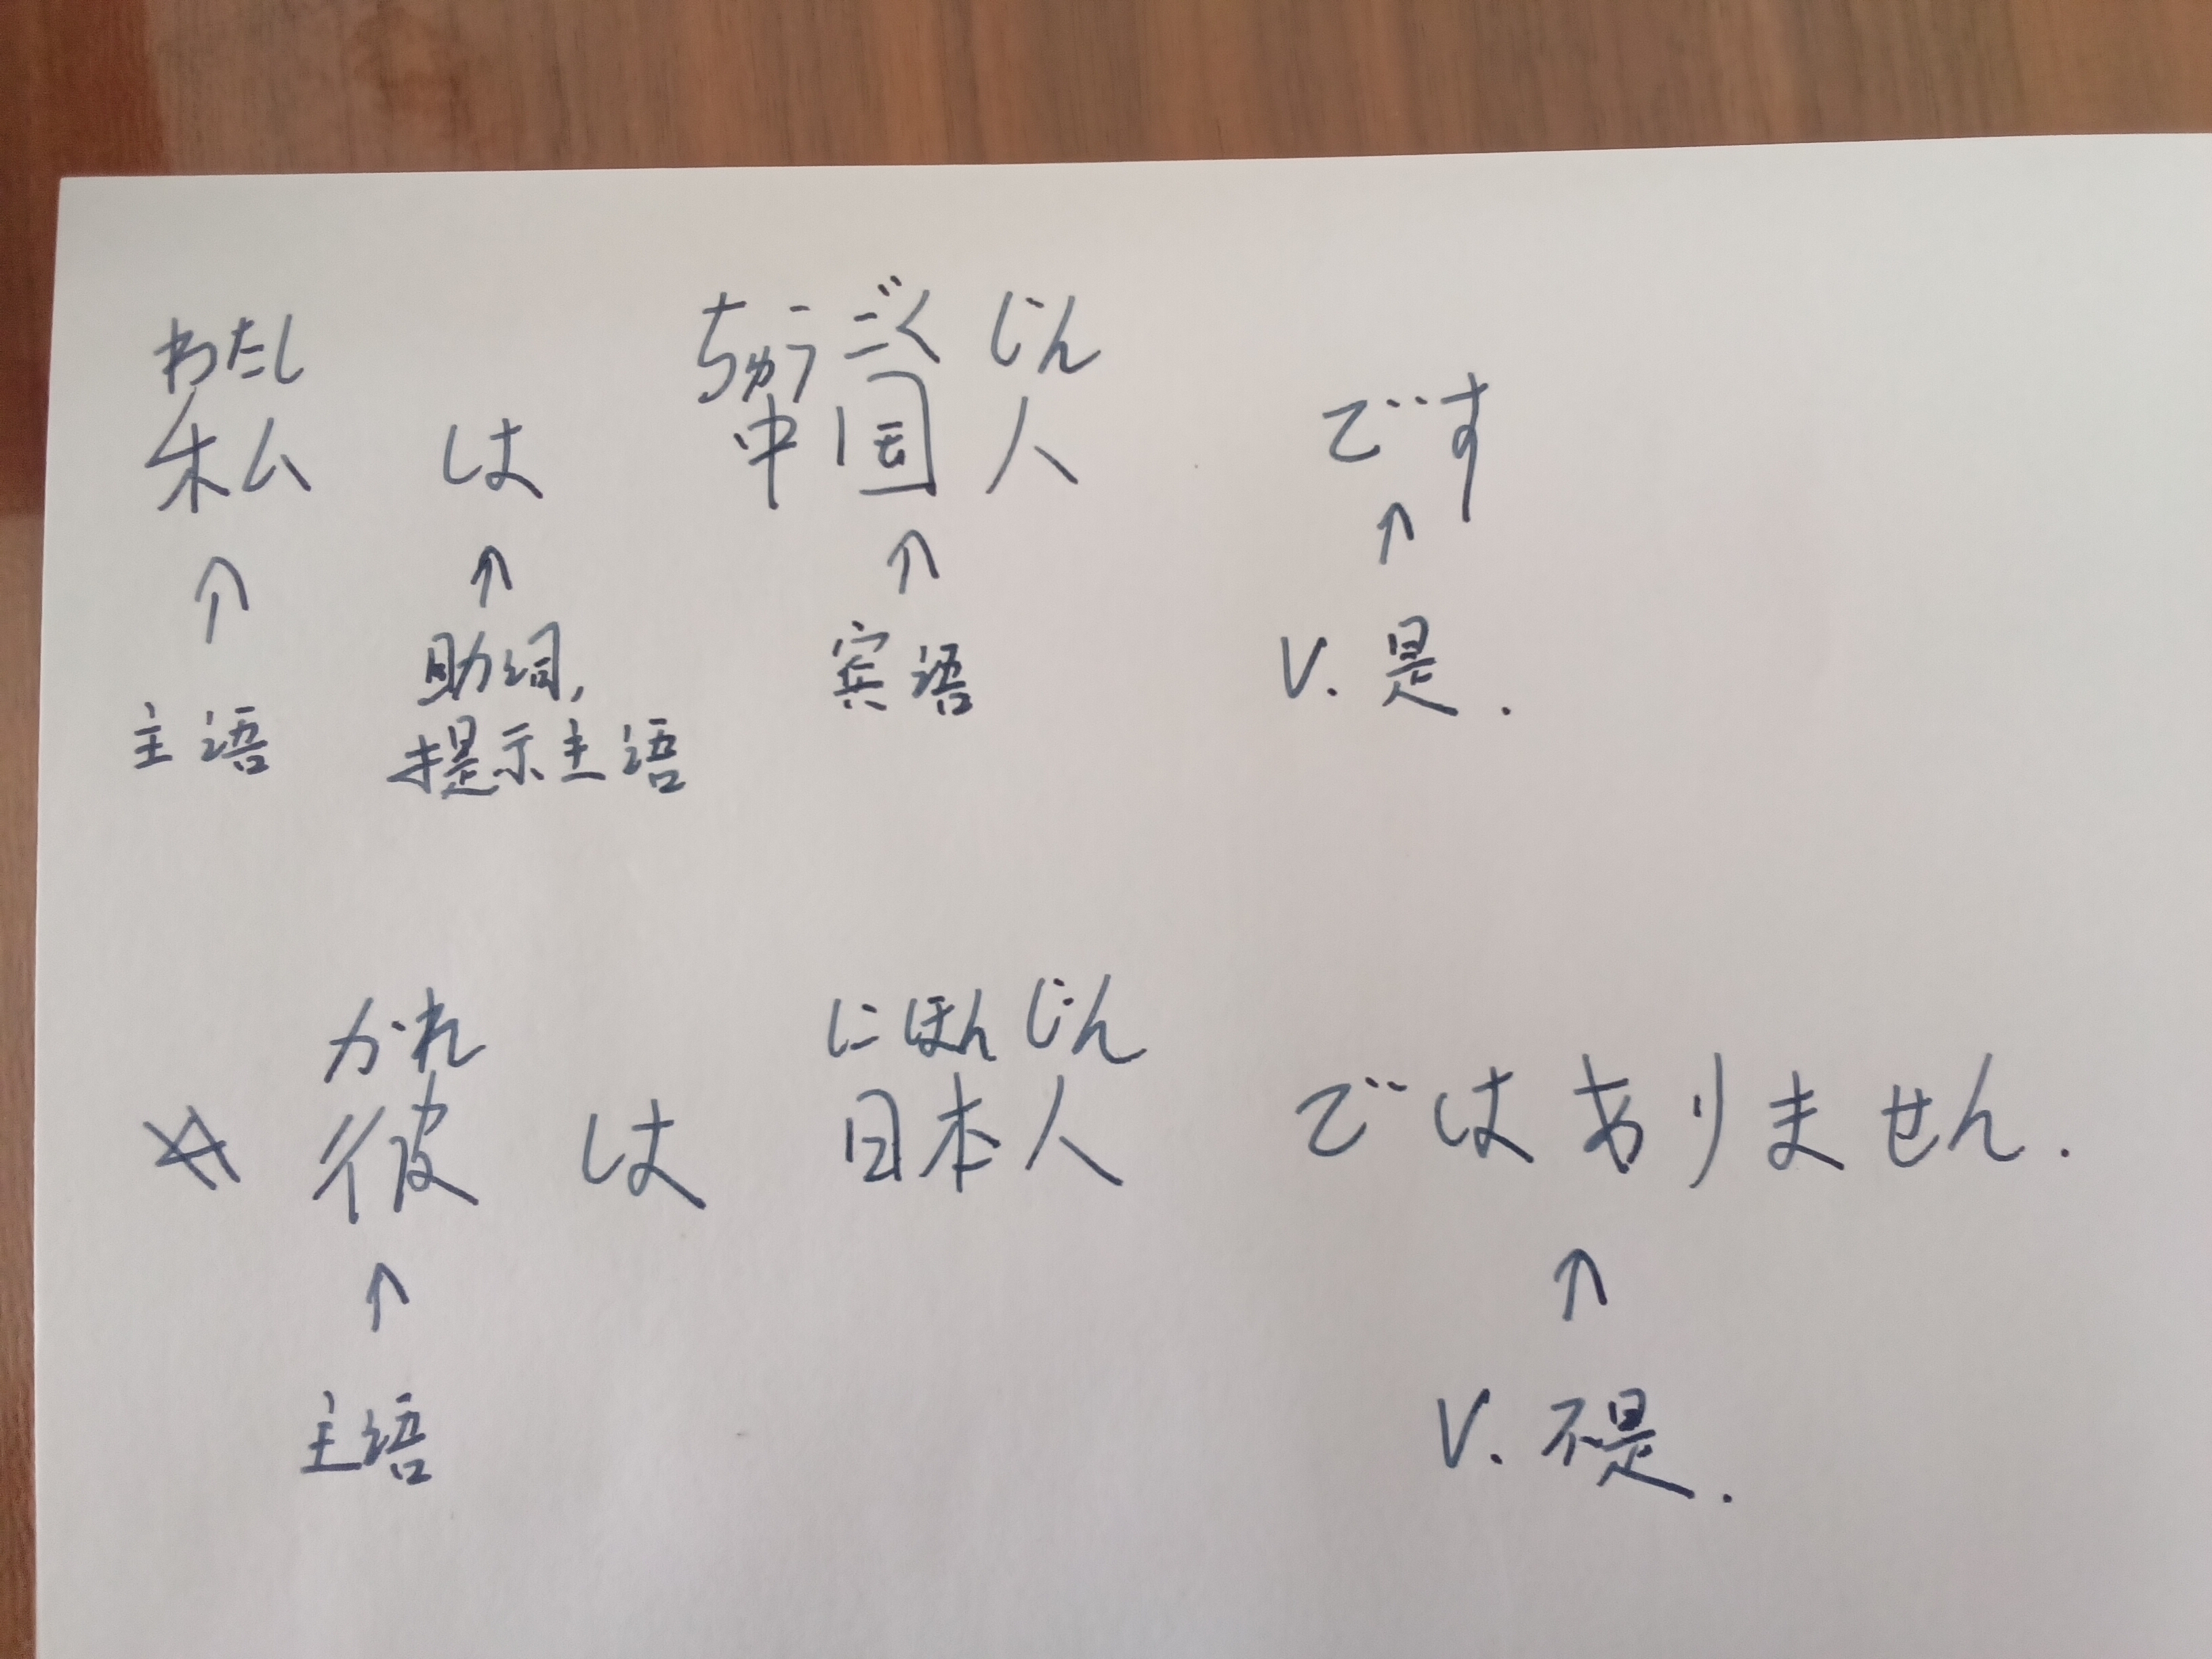 わたし ちゅうごくじん
私 は 中国人 です
↑ ↑ ↑ ↑
主语 助词, 宾语 V. 是.
提示主语
かれ にほんじん
☆ 彼 は 日本人 ではありません.
↑ ↑
主语 V. 不是.